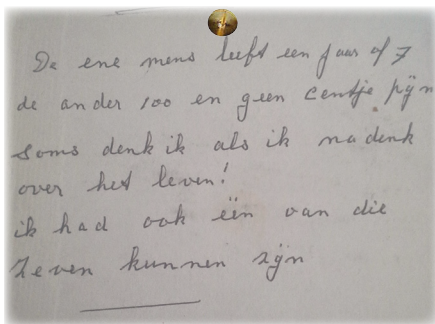 De ene mens leeft een jaar of 7
de ander 100 en geen centje pijn
soms denk ik als ik nadenk
over het leven!
ik had ook één van die
zeven kunnen zijn